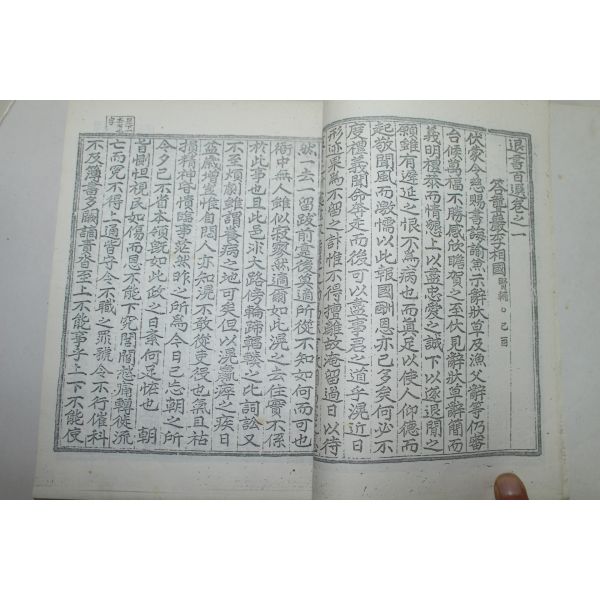 退書百選卷之一
答聾巖李相國 賢輔○己酉
伏蒙令慈賜書誨諭兼示辭狀草及漁父辭等仍審
台候萬福不勝感欣瞻賀之至伏見辭狀草辭簡而
義明禮恭而情懇上以盡忠愛之誠下以遂退閒之
願雖有遲延之恨不爲病也而眞足以使人仰德而
起敬聞風而激懦以此報國酬恩亦已多矣何必不
度禮義聞命奔走而後可以盡事君之道乎滉近日
形迹果爲不留之計惟不得擅離故淹留過日以待
然一去一留跋前疐後莫適所從不知如何而可也
衙中無人雖似寂寥無適爾如此滉之去住實不係
於此事也且此邑非大路傍輪蹄轇轕之比詞訟又
不至煩劇雖謂養病之地可矣但以滉羸瘁之疾日
益歲增豈惟自閒人亦知滉不敢從吏役也無且枯
損精神昏憒臨事茫然昨之所爲今日已忘朝之所
令夕已不省本領旣如此政之日紊何足恠也 朝
旨惻怛視民如傷而恩不能下究閭閻愁痛轉徙流
亡而冤不得上通皆守令不職之罪號令不行催科
不及簿書多闕誚責沓至上不能事于上下不能使